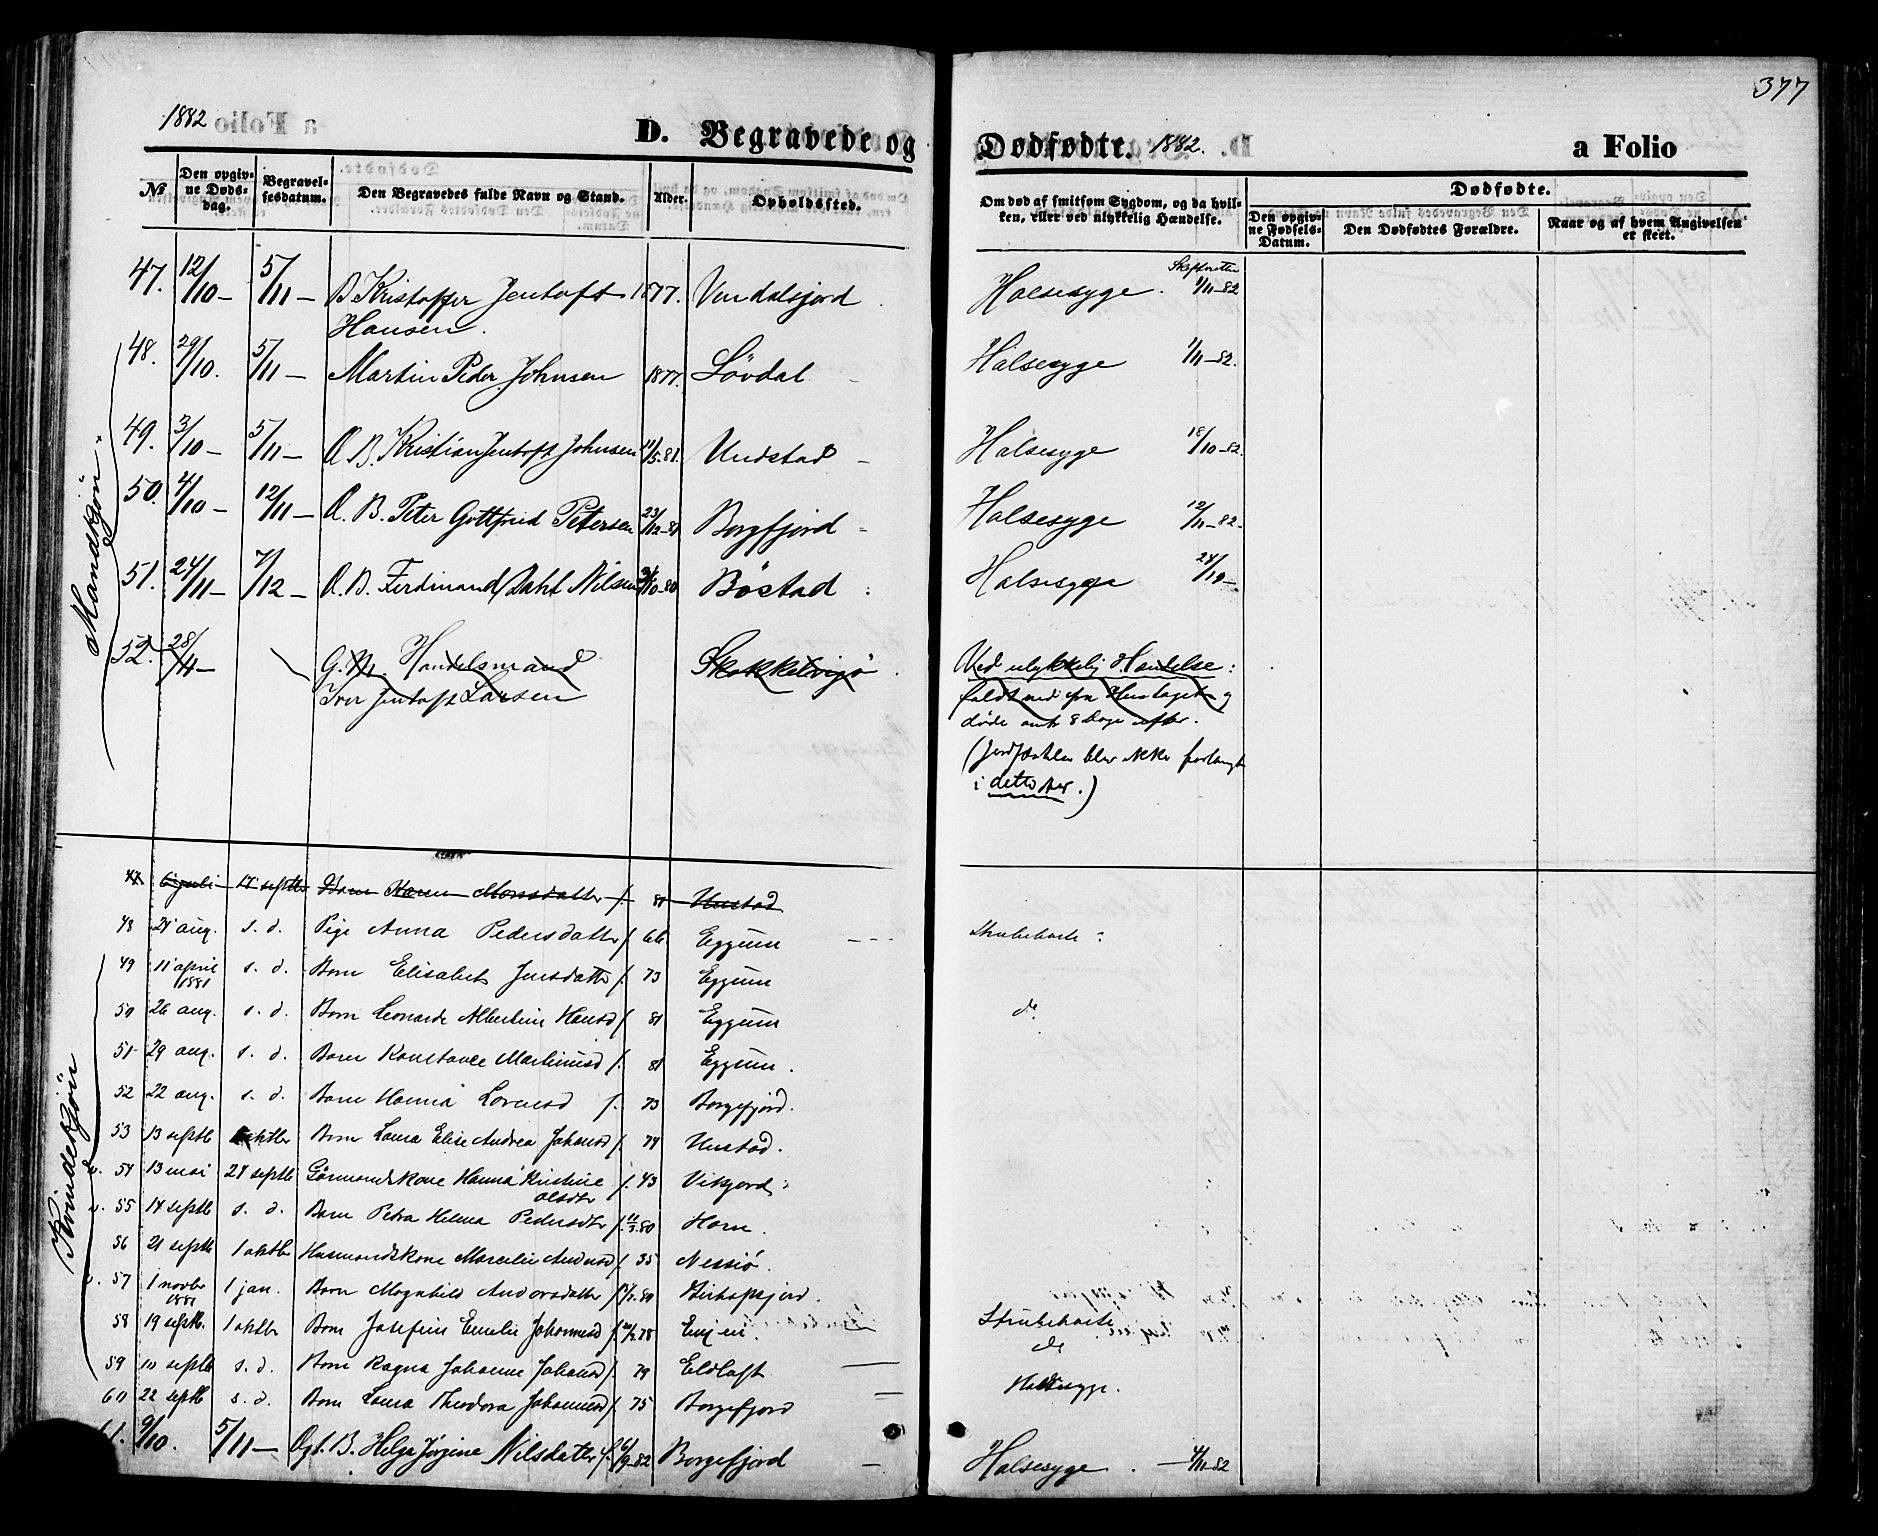 377
1882
D. Begravede og
Dødfødte. 1882.
a Folio
No
Den opgivne Dødsdag.
Begravelsesdatum.
Den Begravedes fulde Navn og Stand.
Alder.
Opholdssted.
Om død af smitsom Sygdom, og da hvilken, eller ved ulykkelig Hændelse.
Dødfødte.
Den opgivne Fødsels-Datum.
Den Dødfødtes Forældre.
Naar og af hvem Angivelsen er skeet.
Mandkjøn.
47. 12/10 - 5/11 - B Kristoffer Jentoft 1877. Vendalsjord Halsesyge. 1/11-82
Hansen.
48. 29/10. 5/11 - Martin Peder Johnsen 1877. Løvdal Halsesyge 1/11-82.
49. 3/10 - 5/11 - Æ B. Kristian Jentoft Johnsen 11/5.81. Undstad - Halsesyge 18/10-82.
50. 4/10 - 12/11 - Æ. B. Peter Gottfried Petersen 23/12-81 Borgfjord - Halsesyge 12/11-82-
51. 24/11 - 7/12 - Æ. B. Ferdinand Dahl Nilsen /10-80 Bøstad Halsesyge 24/10-
52. 28/4 - G. M. Handelsmand Skokkelvigø Ved ulykkelig Hændelse:
Iver Jentoft Larsen faldt ned fra Hustaget og
døde omtr 8 Dage efter.
(Jordfæstelse blev ikke forlangt
i dette Aar.)
Kvindekjøn
47 6 juli 17 septbr Barn Karen Monsdatter f. 81 Unstad
48 21 aug. s. d. Pige Anna Pedersdatter f. 66 Eggum Strubehoste
49 11 april 1881 s. d. Barn Elisabet Jensdatter f. 73 Eggum
50 26 aug. s. d. Barn Leonarde Albertine Hansd f. 81 Eggum do
51 29 aug. s. d. Barn Konstance Martinusd f. 81 Eggum.
52 22 aug. s. d. Barn Hanna Lorensd f. 73 Borgefjord.
53 13 septb oktbr Barn Laura Elise Andrea Johansd f. 74 Unstad.
54 13 mai 24 septb Gårmandskone Hanna Kristine f. 43 Vikjord
Olsdtr
55 14 septb s. d. Barn Petra Helma Pedersdtr f. 11/3.80 Horn.
56 21 septb 1 oktbr Husmandskone Marcelie Andersd f. 35 Nessiø.
57 1 novbr 1881 1 jan. Barn Magnhild Andorsdatter f. 80 Birkopsjord.
58 19 septb. 1 oktbr Barn Josefine Emelie Johannesd f. 78 Engen. Strubehoste
59 10 septb s. d. Barn Ragna Johanne Johansd f. 79 Eldtoft do
60 22 septb s. d. Barn Laura Theodora Johannesd f. 75 Borgefjord Halssyge.
61. 9/10. 5/11 - Ægt. B. Helga Jørgine Nilsdatter f. 6/9-82 Borgefjord - Halsesyge. - 4/11-82